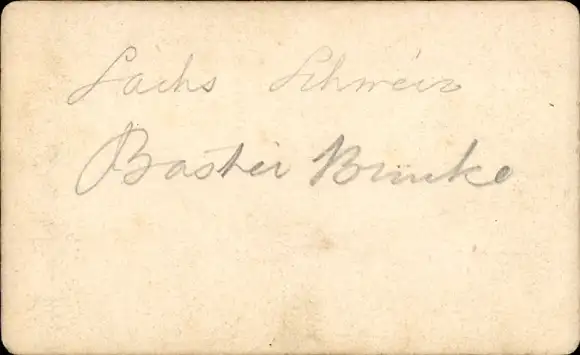 Sächs Schweiz
Bastei Brücke